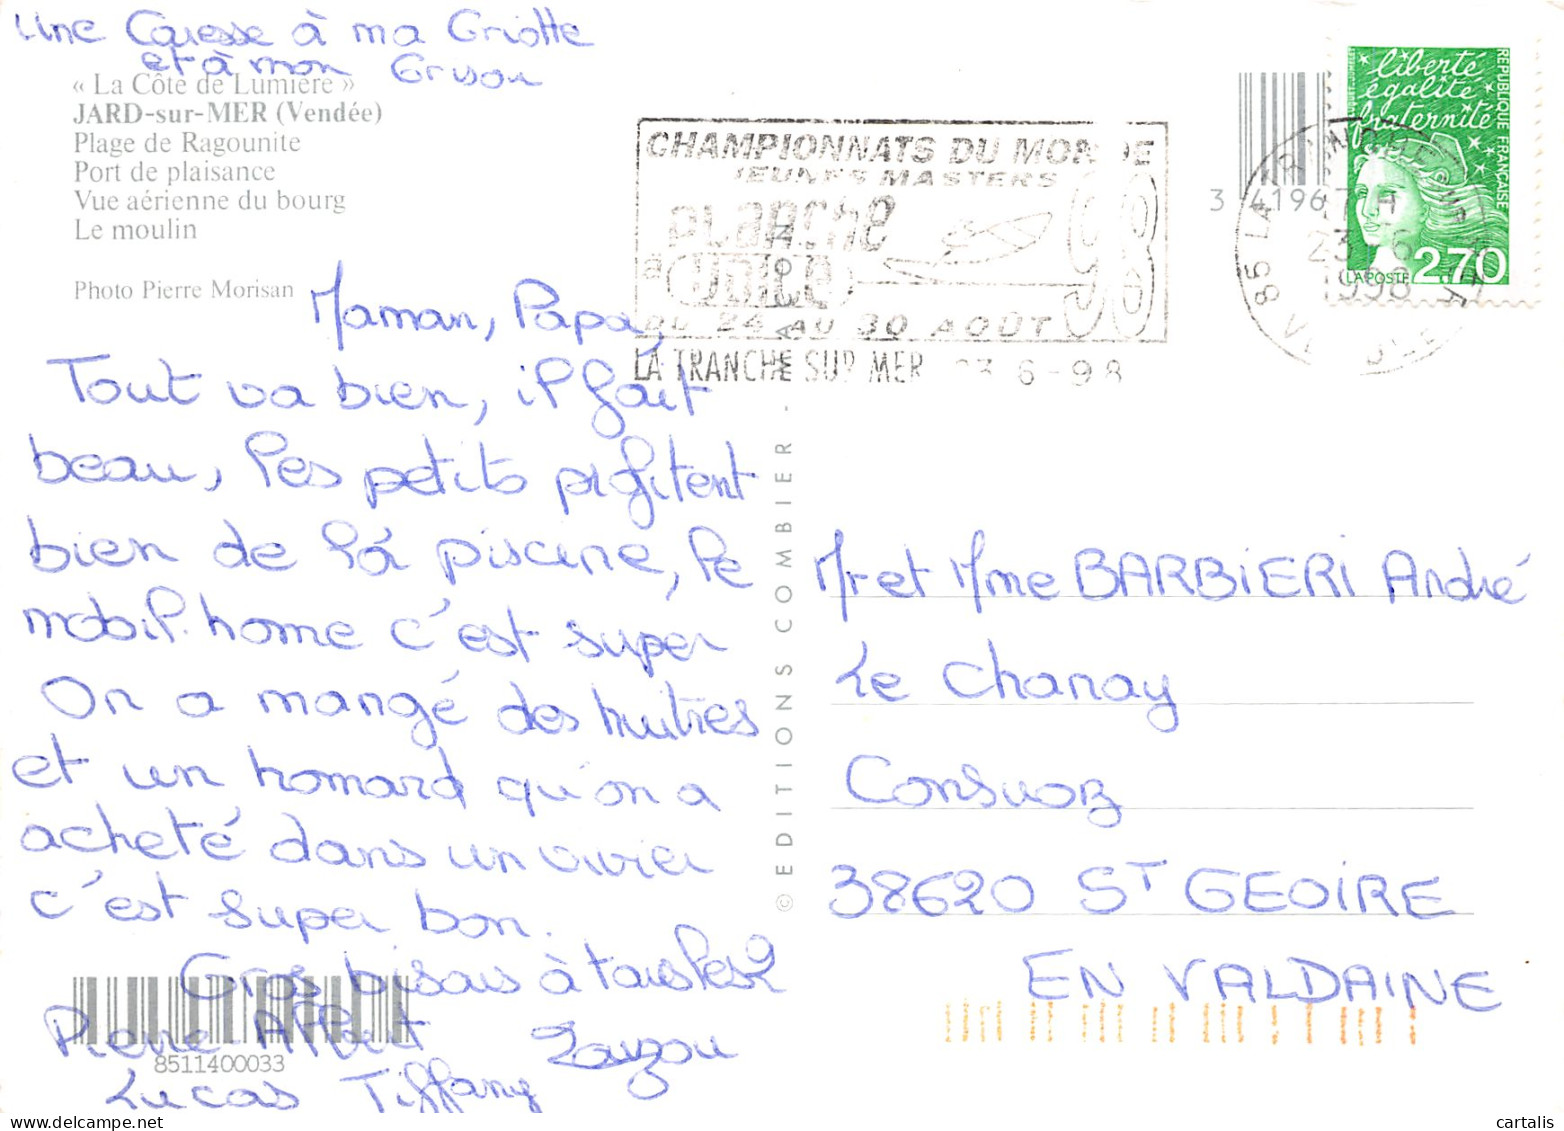 Une Caresse à ma Griotte
et à mon Grison
« La Côte de Lumière »
JARD-sur-MER (Vendée)
Plage de Ragounite
Port de plaisance
Vue aérienne du bourg
Le moulin
Photo Pierre Morisan
Maman, Papa,
Tout va bien, il fait
beau, les petits profitent
bien de la piscine, le
mobil-home c'est super
On a mangé des huitres
et un homard qu'on a
acheté dans un vivier
c'est super bon.
Gros bisous à tous les 2
Pierre Albert Zouzou
Lucas Tiffany
8511400033
© EDITIONS COMBIER - MACON
CHAMPIONNATS DU MONDE
JEUNES MASTERS
PLANCHE
à VOILE
98
DU 24 AU 30 AOÛT
LA TRANCHE SUR MER 23-6-98
3 41967
85 LA TRANCHE
23-6
1998
liberté
égalité
fraternité
RÉPUBLIQUE FRANÇAISE
LA POSTE 2,70
Mr et Mme BARBIERI André
Le Chanay
Consuoz
38620 ST GEOIRE
EN VALDAINE
www.delcampe.net
cartalis